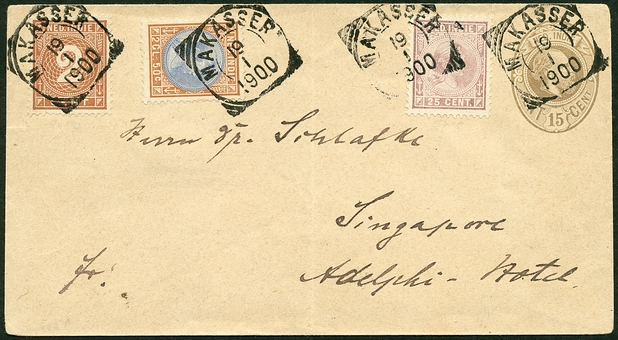 MAKASSER
19
1
1900
MAKASSER
19
1
1900
MAKASSER
19
1
1900
MAKASSER
19
1
1900
25 CENT.
15 CENT
Herrn Dr. Schlafke
Singapore
Adelphi-Hotel.
fr.